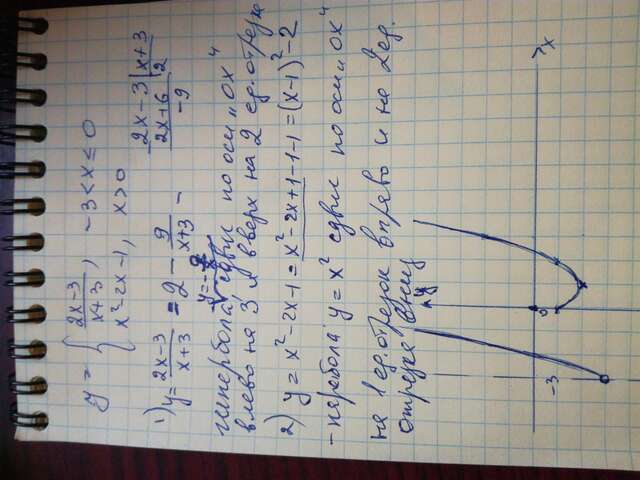 y = { (2x-3)/(x+3), -3<x≤0
x²-2x-1, x>0
1) y = (2x-3)/(x+3) = 2 - 9/(x+3) -
2x-3 | x+3
2x+6 | 2
-9
y=-9/x
гипербола сдвиг по оси "ox"
влево на 3 и вверх на 2 ед. отрезка
2) y = x²-2x-1 = x²-2x+1-1-1 = (x-1)²-2
- парабола y = x² сдвиг по оси "ox"
на 1 ед. отрезок вправо и на 2 ед.
отрезка вниз
y
x
0
-3